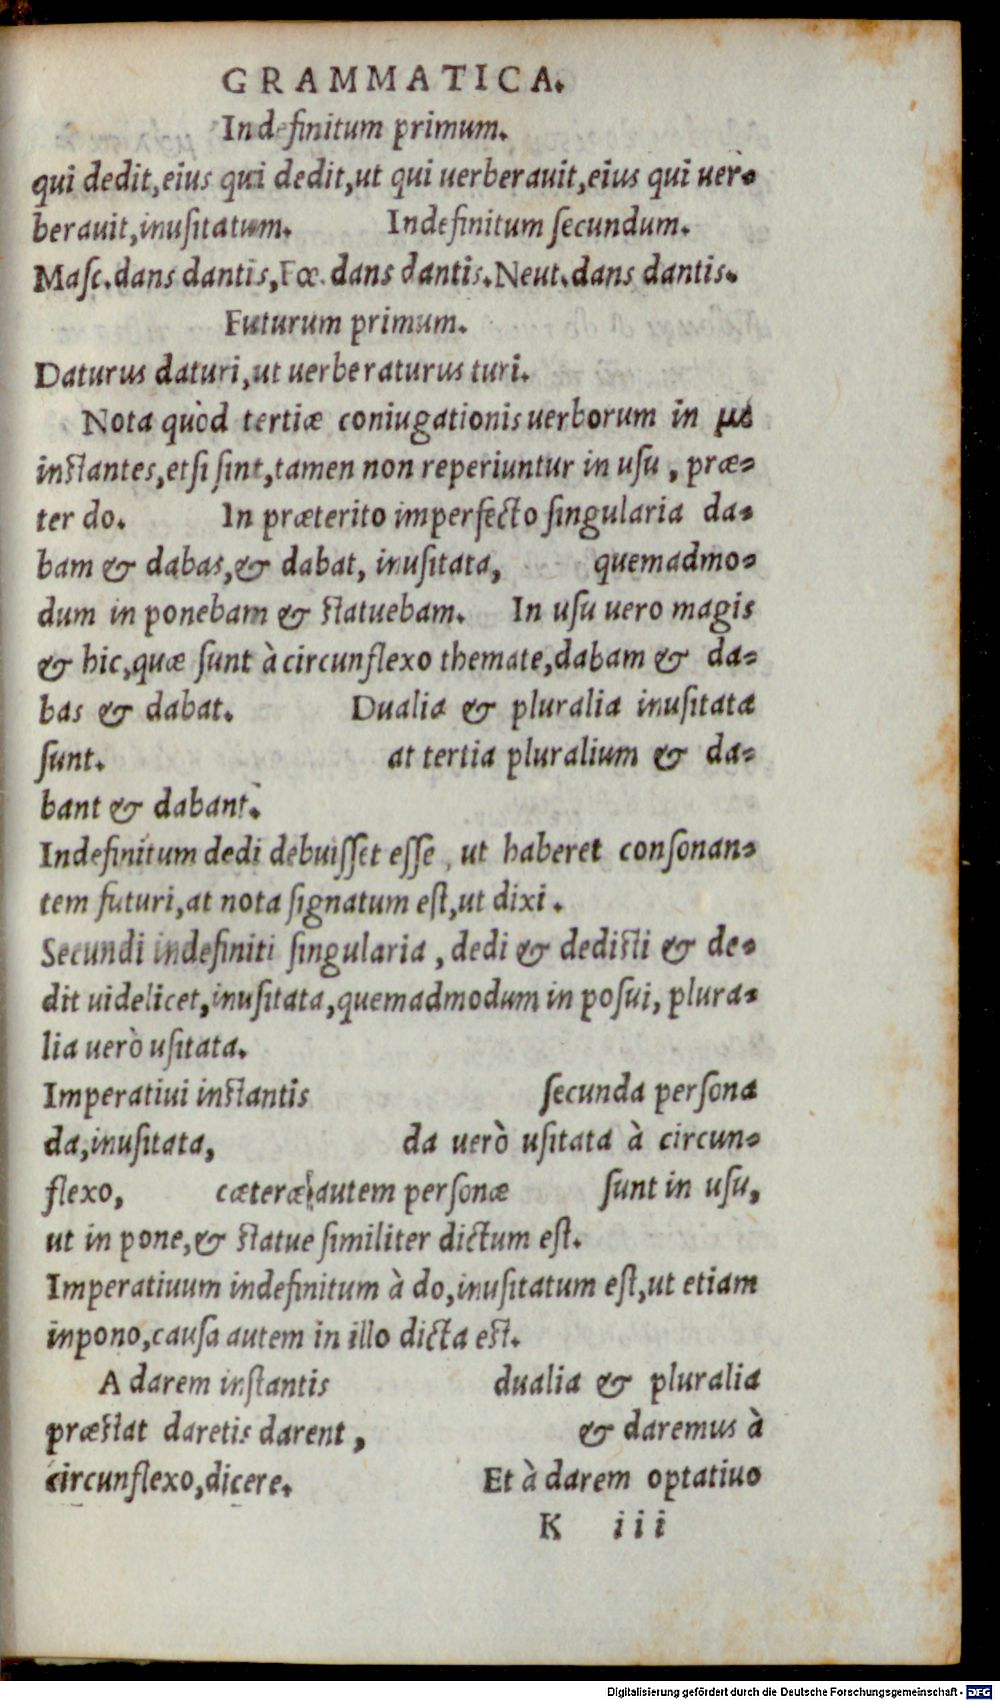 GRAMMATICA.
Indefinitum primum.
qui dedit,eius qui dedit,ut qui uerberauit,eius qui uer-
berauit,inusitatum. Indefinitum secundum.
Masc.dans dantis,Fœ. dans dantis.Neut.dans dantis.
Futurum primum.
Daturus daturi,ut uerberaturus turi.
Nota quòd tertiæ coniugationis uerborum in μι
instantes,etsi sint,tamen non reperiuntur in usu , præ-
ter do. In præterito imperfecto singularia da-
bam & dabas,& dabat, inusitata, quemadmo-
dum in ponebam & statuebam. In usu uero magis
& hic,quæ sunt à circunflexo themate,dabam & da-
bas & dabat. Dualia & pluralia inusitata
sunt. at tertia pluralium & da-
bant & dabant.
Indefinitum dedi debuisset esse , ut haberet consonan-
tem futuri,at nota signatum est,ut dixi .
Secundi indefiniti singularia , dedi & dedisti & de-
dit uidelicet,inusitata,quemadmodum in posui, plura-
lia uerò usitata.
Imperatiui instantis secunda persona
da,inusitata, da uerò usitata à circun-
flexo, cæteræ autem personæ sunt in usu,
ut in pone,& statue similiter dictum est.
Imperatiuum indefinitum à do,inusitatum est,ut etiam
in pono,causa autem in illo dicta est.
A darem instantis dualia & pluralia
præstat daretis darent , & daremus à
circunflexo,dicere. Et à darem optatiuo
K iii
Digitalisierung gefördert durch die Deutsche Forschungsgemeinschaft - DFG